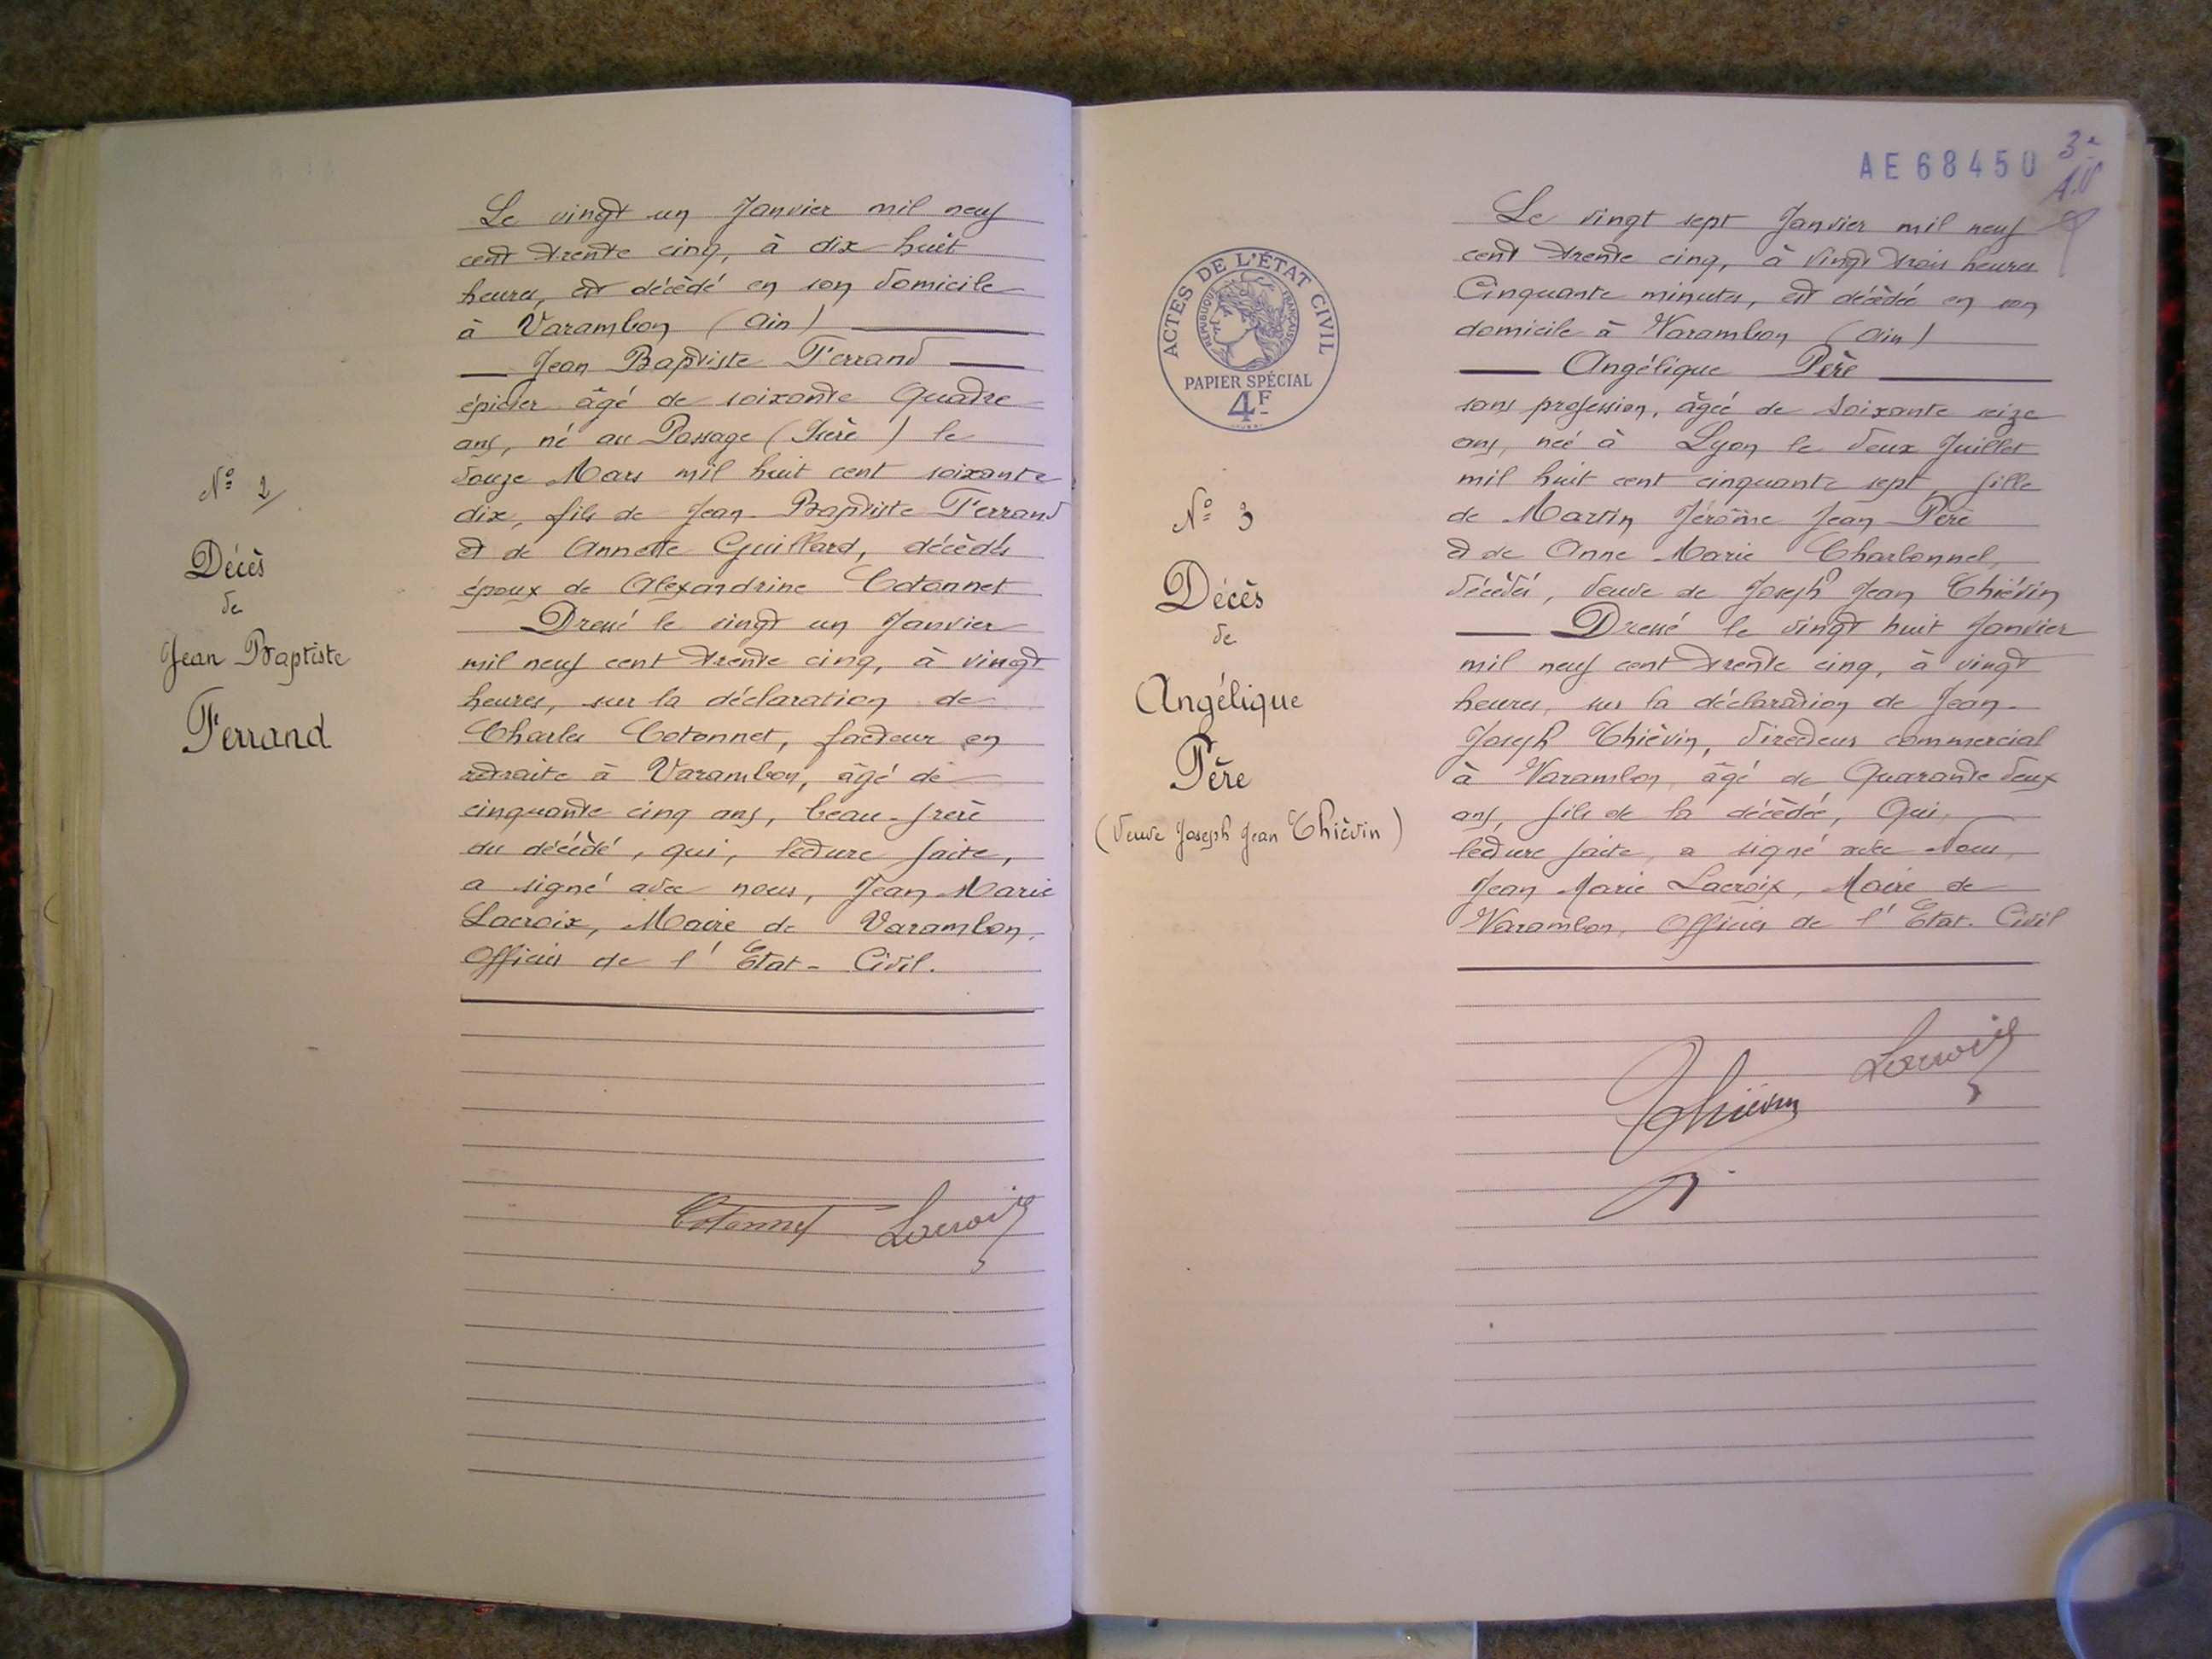 Nº 2
Décès
de
Jean Baptiste
Ferrand
Le vingt un Janvier mil neuf
cent trente cinq, à dix huit
heures, est décédé en son domicile
à Varambon (Ain)
Jean Baptiste Ferrand
épicier âgé de soixante quatre
ans, né au Passage (Isère) le
douze Mars mil huit cent soixante
dix, fils de Jean-Baptiste Ferrand
et de Annette Guillard, décédés
époux de Alexandrine Cotonnet
Dressé le vingt un Janvier
mil neuf cent trente cinq, à vingt
heures, sur la déclaration de
Charles Cotonnet, facteur en
retraite à Varambon, âgé de
cinquante cinq ans, beau-frère
du décédé, qui, lecture faite,
a signé avec nous, Jean Marie
Lacroix, Maire de Varambon,
Officier de l'Etat-Civil.
Cotonnet Lacroix
AE68450
3e
ACTES DE L'ÉTAT CIVIL
RÉPUBLIQUE FRANÇAISE
PAPIER SPÉCIAL
4F
Nº 3
Décès
de
Angélique
Père
(Veuve Joseph Jean Thiévin)
Le vingt sept Janvier mil neuf
cent trente cinq, à vingt trois heures
Cinquante minutes, est décédée en son
domicile à Varambon (Ain)
Angélique Père
sans profession, âgée de soixante seize
ans, née à Lyon le deux Juillet
mil huit cent cinquante sept, fille
de Martin Jérôme Jean Père
et de Anne Marie Charbonnel,
décédés, veuve de Joseph Jean Thiévin
Dressé le vingt huit Janvier
mil neuf cent trente cinq, à vingt
heures, sur la déclaration de Jean-
Joseph Thiévin, directeur commercial
à Varambon, âgé de Quarante deux
ans, fils de la décédée, Qui,
lecture faite, a signé avec Nous,
Jean Marie Lacroix, Maire de
Varambon, Officier de l'Etat-Civil
Thiévin Lacroix